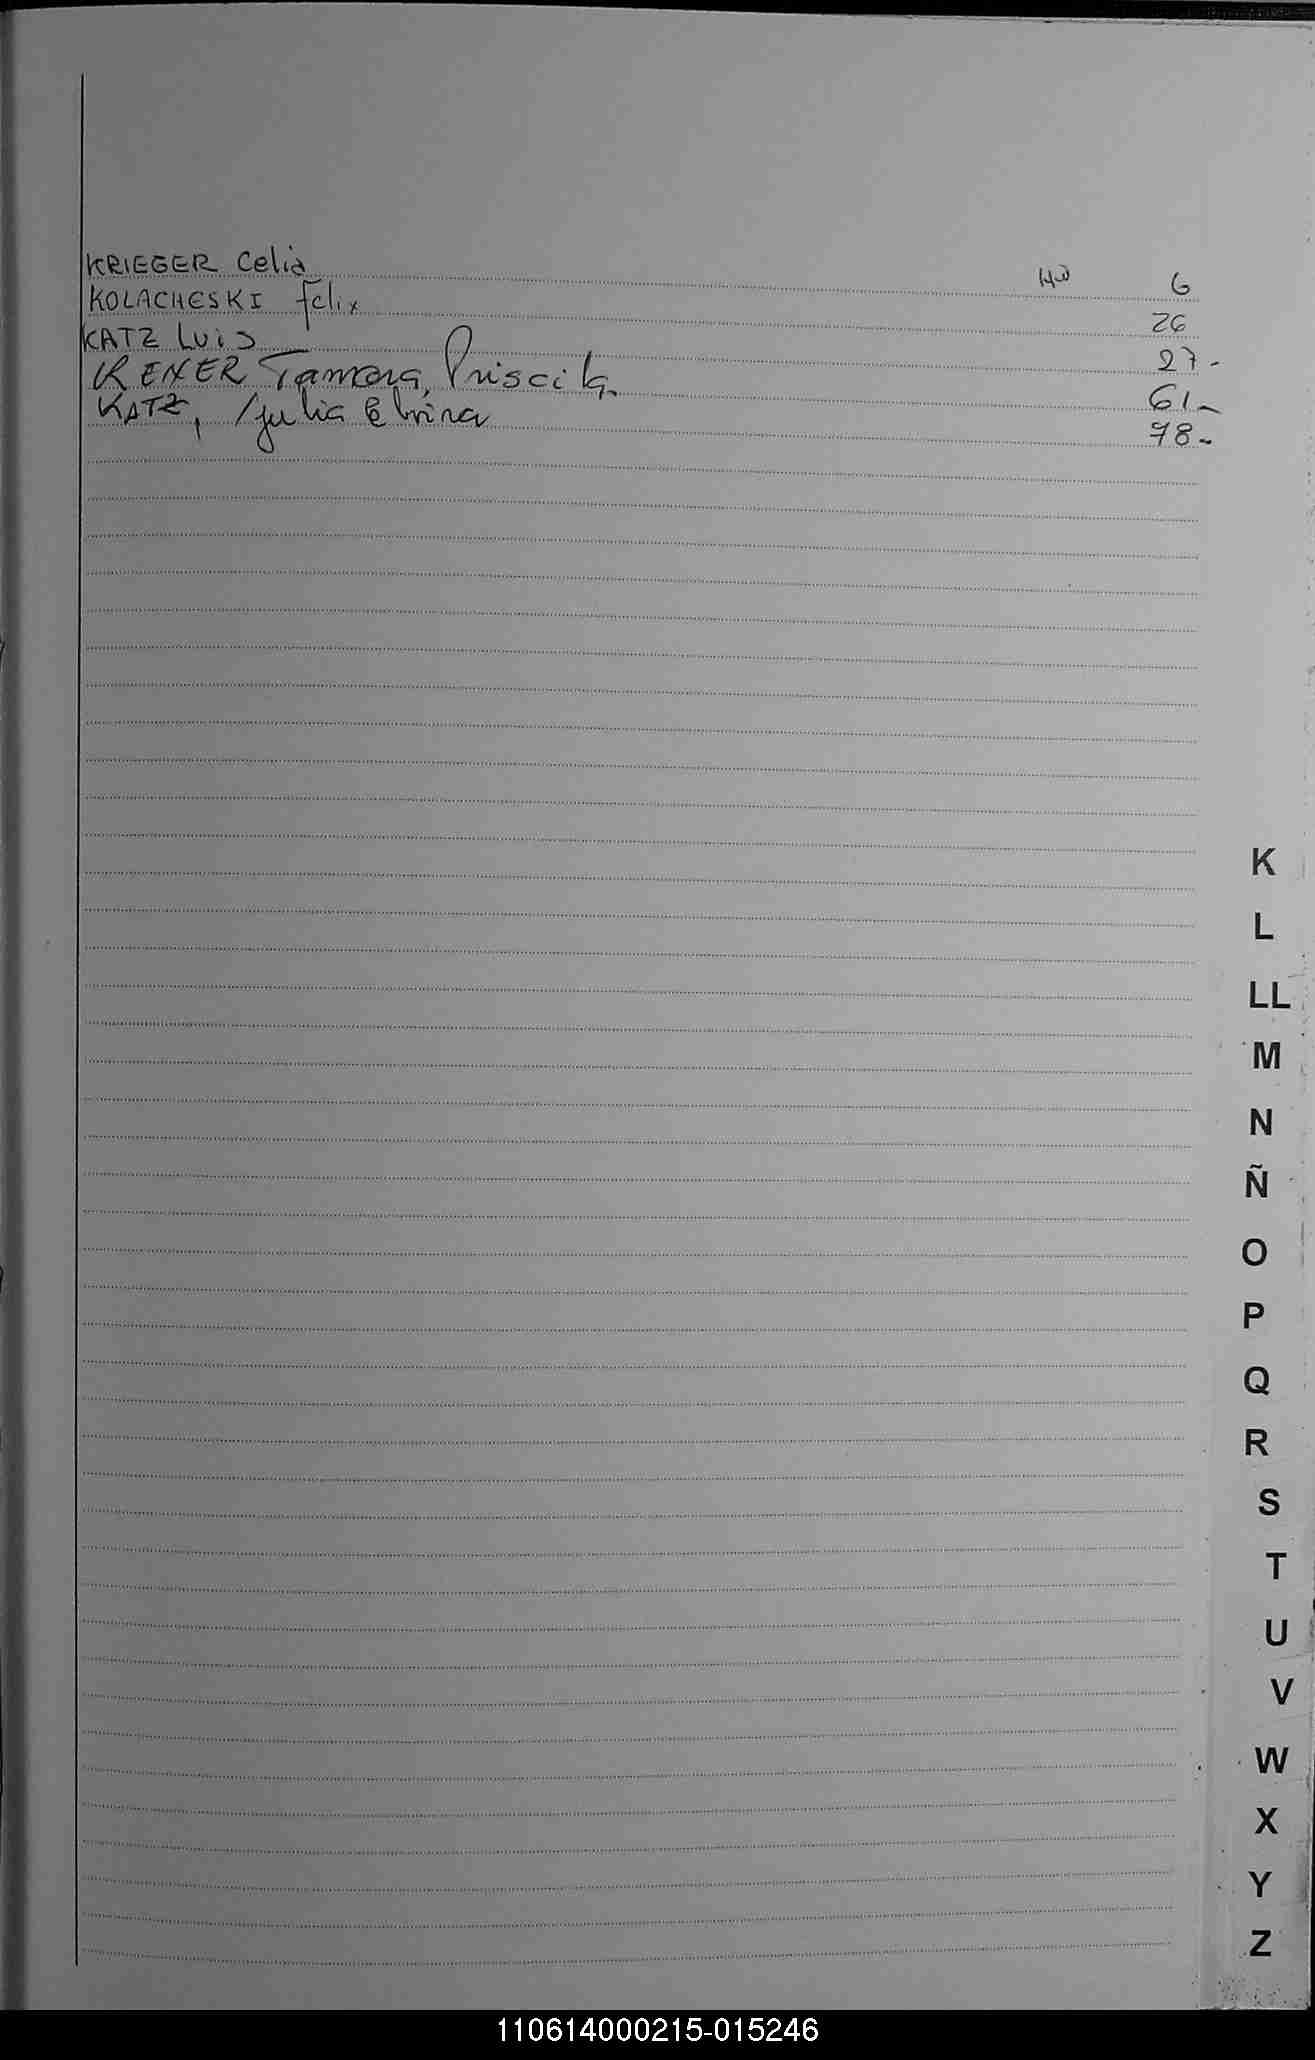 KRIEGER Celia 6
KOLACHESKI Felix 26
KATZ LUIS 27-
KEXER Tamara, Priscila. 61-
KATZ, Julia 78-
K
L
LL
M
N
Ñ
O
P
Q
R
S
T
U
V
W
X
Y
Z
110614000215-015246